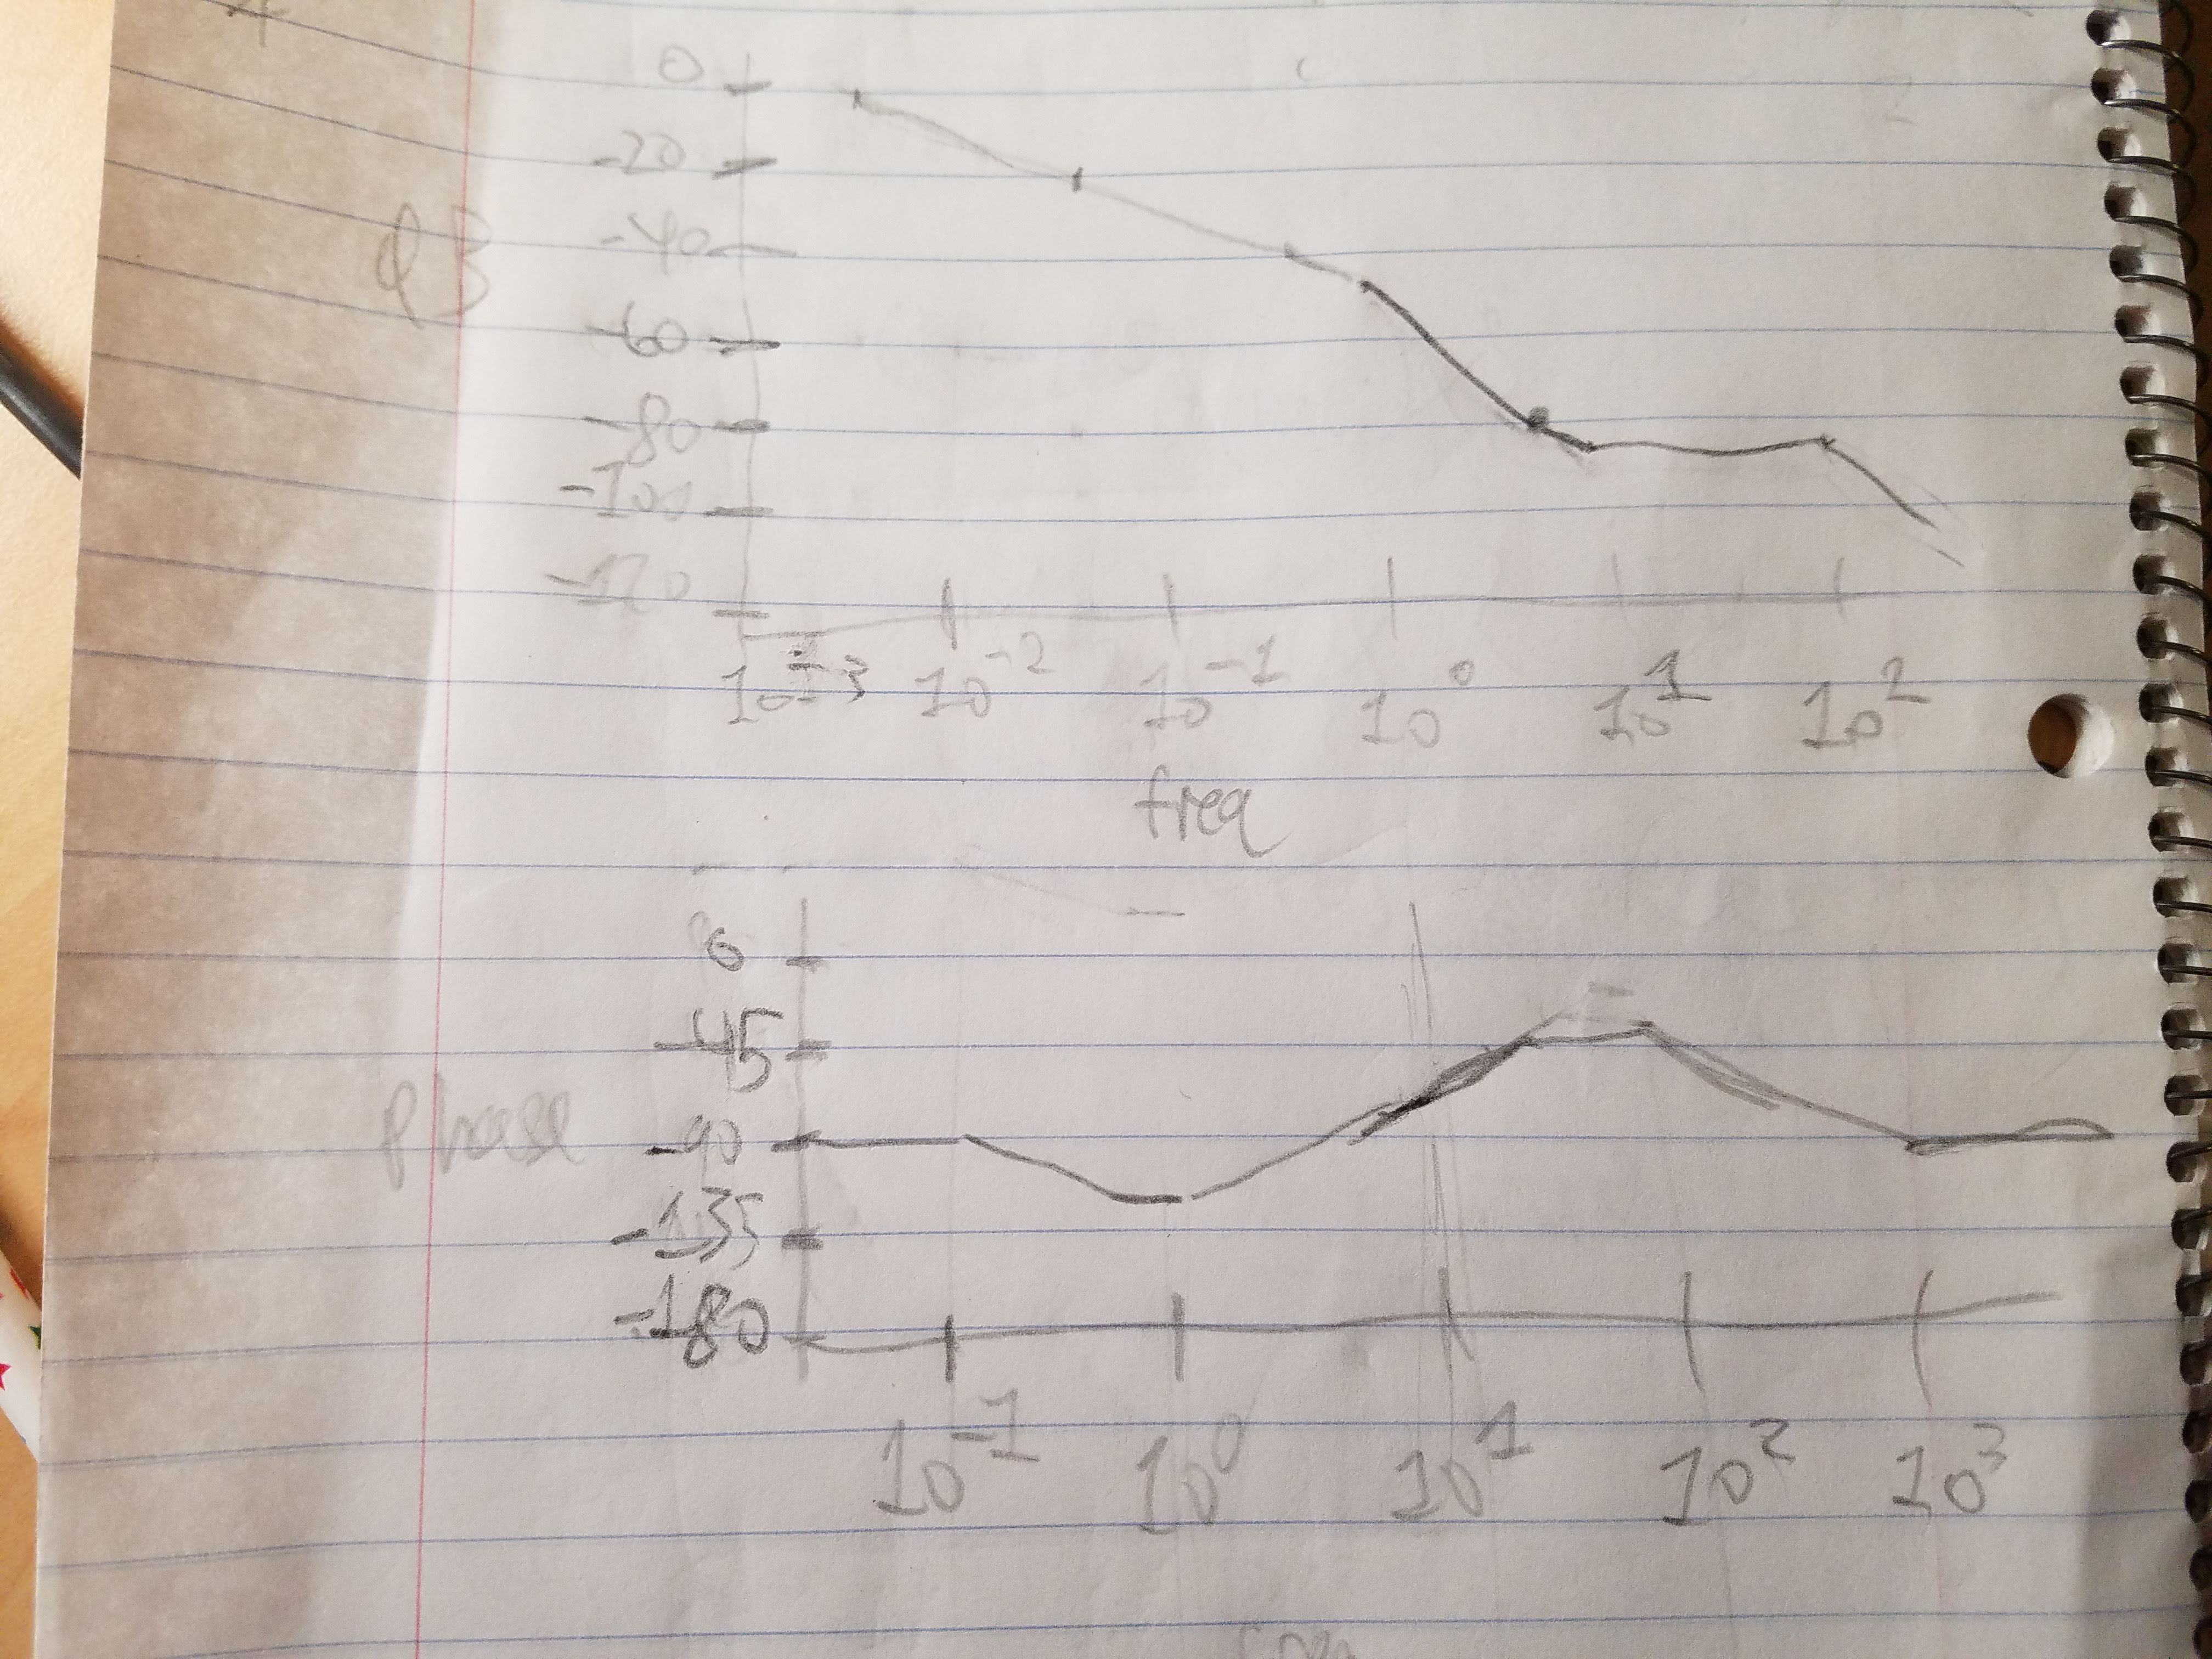 dB
0
-20
-40
-60
-80
-100
-120
10^-3 10^-2 10^-1 10^0 10^1 10^2
freq
phase
0
-45
-90
-135
-180
10^-1 10^0 10^1 10^2 10^3